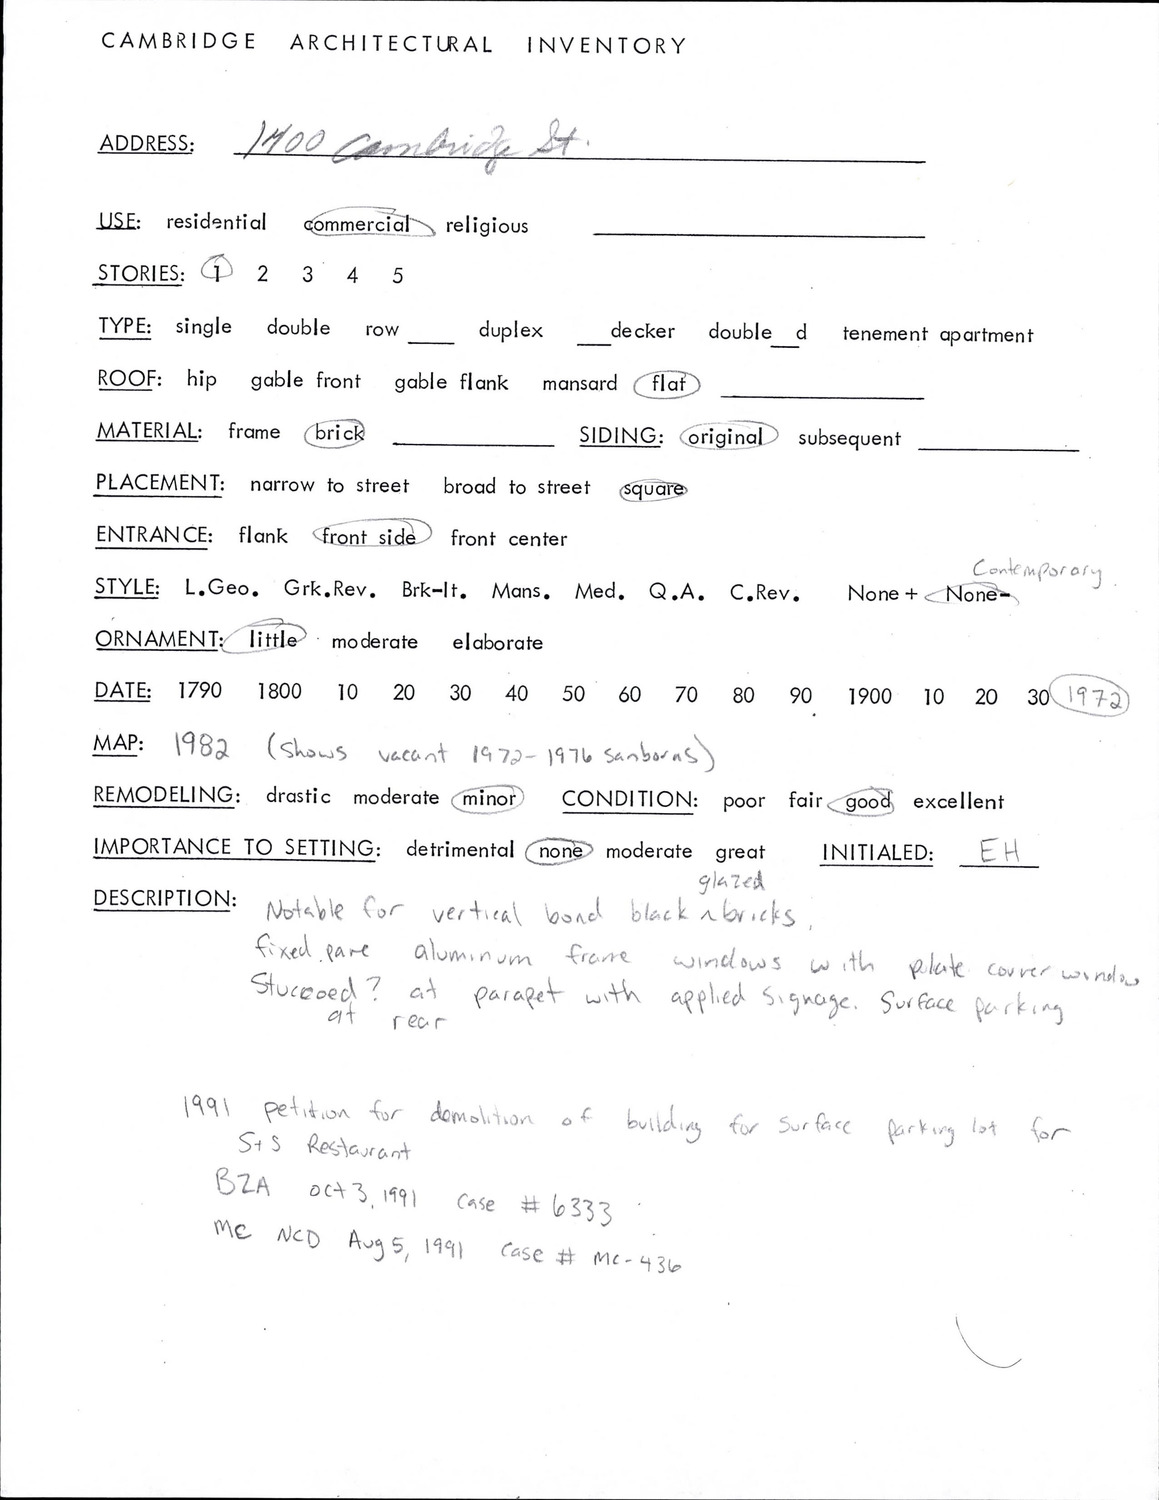 CAMBRIDGE ARCHITECTURAL INVENTORY
ADDRESS: 1400 Cambridge St.
USE: residential commercial religious
STORIES: 1 2 3 4 5
TYPE: single double row ____ duplex ___decker double__d tenement apartment
ROOF: hip gable front gable flank mansard flat
MATERIAL: frame brick SIDING: original subsequent
PLACEMENT: narrow to street broad to street square
ENTRANCE: flank front side front center
Contemporary
STYLE: L.Geo. Grk.Rev. Brk-It. Mans. Med. Q.A. C.Rev. None+ None-
ORNAMENT: little moderate elaborate
DATE: 1790 1800 10 20 30 40 50 60 70 80 90 1900 10 20 30 1972
MAP: 1982 (shows vacant 1972-1976 Sanborns)
REMODELING: drastic moderate minor CONDITION: poor fair good excellent
IMPORTANCE TO SETTING: detrimental none moderate great INITIALED: EH
glazed
DESCRIPTION: Notable for vertical bond black bricks,
fixed pane aluminum frame windows with plate cover window
Stuccoed? at parapet with applied signage. Surface parking
at rear
1991 petition for demolition of building for surface parking lot for
S+S Restaurant
BZA oct 3, 1991 Case # 6333
MC NCD Aug 5, 1991 Case # MC-436